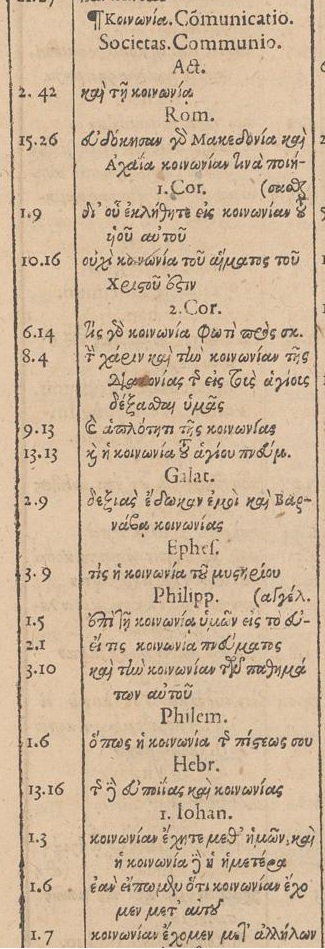 ¶ Κοινωνία. Cõmunicatio.
Societas. Communio.
Act.
2. 42 καὶ τῇ κοινωνίᾳ
Rom.
15.26 εὐδόκησαν γὸ Μακεδονία καὶ
Αχαΐα κοινωνίαν τινὰ ποιή-
1. Cor. (σασθζ
1.9 δι' οὗ ἐκλήθητε εἰς κοινωνίαν τοῦ
ἡοῦ αὐτοῦ
10.16 οὐχὶ κοινωνία τοῦ αἵματος τοῦ
Χριστοῦ ἐστιν
2. Cor.
6.14 τίς γὸ κοινωνία φωτὶ πρὸς σκ.
8.4 τὴν χάριν καὶ τὴν κοινωνίαν τῆς
Διακονίας τῆς εἰς τοὺς ἁγίοις
δέξασθαι ὑμᾶς
9.13 ἁπλότητι τῆς κοινωνίας
13.13 καὶ ἡ κοινωνία τοῦ ἁγίου πνεύμ.
Galat.
2.9 δεξιὰς ἔδωκαν ἐμοὶ καὶ Βαρ-
νάβᾳ κοινωνίας
Ephes.
3. 9 τίς ἡ κοινωνία τοῦ μυστηρίου
Philipp. (αγγέλ.
1.5 ἐπὶ τῇ κοινωνίᾳ ὑμῶν εἰς τὸ εὐ-
2.1 εἴ τις κοινωνία πνεύματος
3.10 καὶ τὴν κοινωνίαν τῶν παθημά
των αὐτοῦ
Philem.
1.6 ὅπως ἡ κοινωνία τῆς πίστεώς σου
Hebr.
13.16 τῆς δὲ εὐποιΐας καὶ κοινωνίας
1. Iohan.
1.3 κοινωνίαν ἔχητε μεθ' ἡμῶν, καὶ
ἡ κοινωνία δὲ ἡ ἡμετέρα
1.6 ἐὰν εἴπωμεν ὅτι κοινωνίαν ἔχο
μεν μετ' αὐτοῦ
1.7 κοινωνίαν ἔχομεν μετ' ἀλλήλων